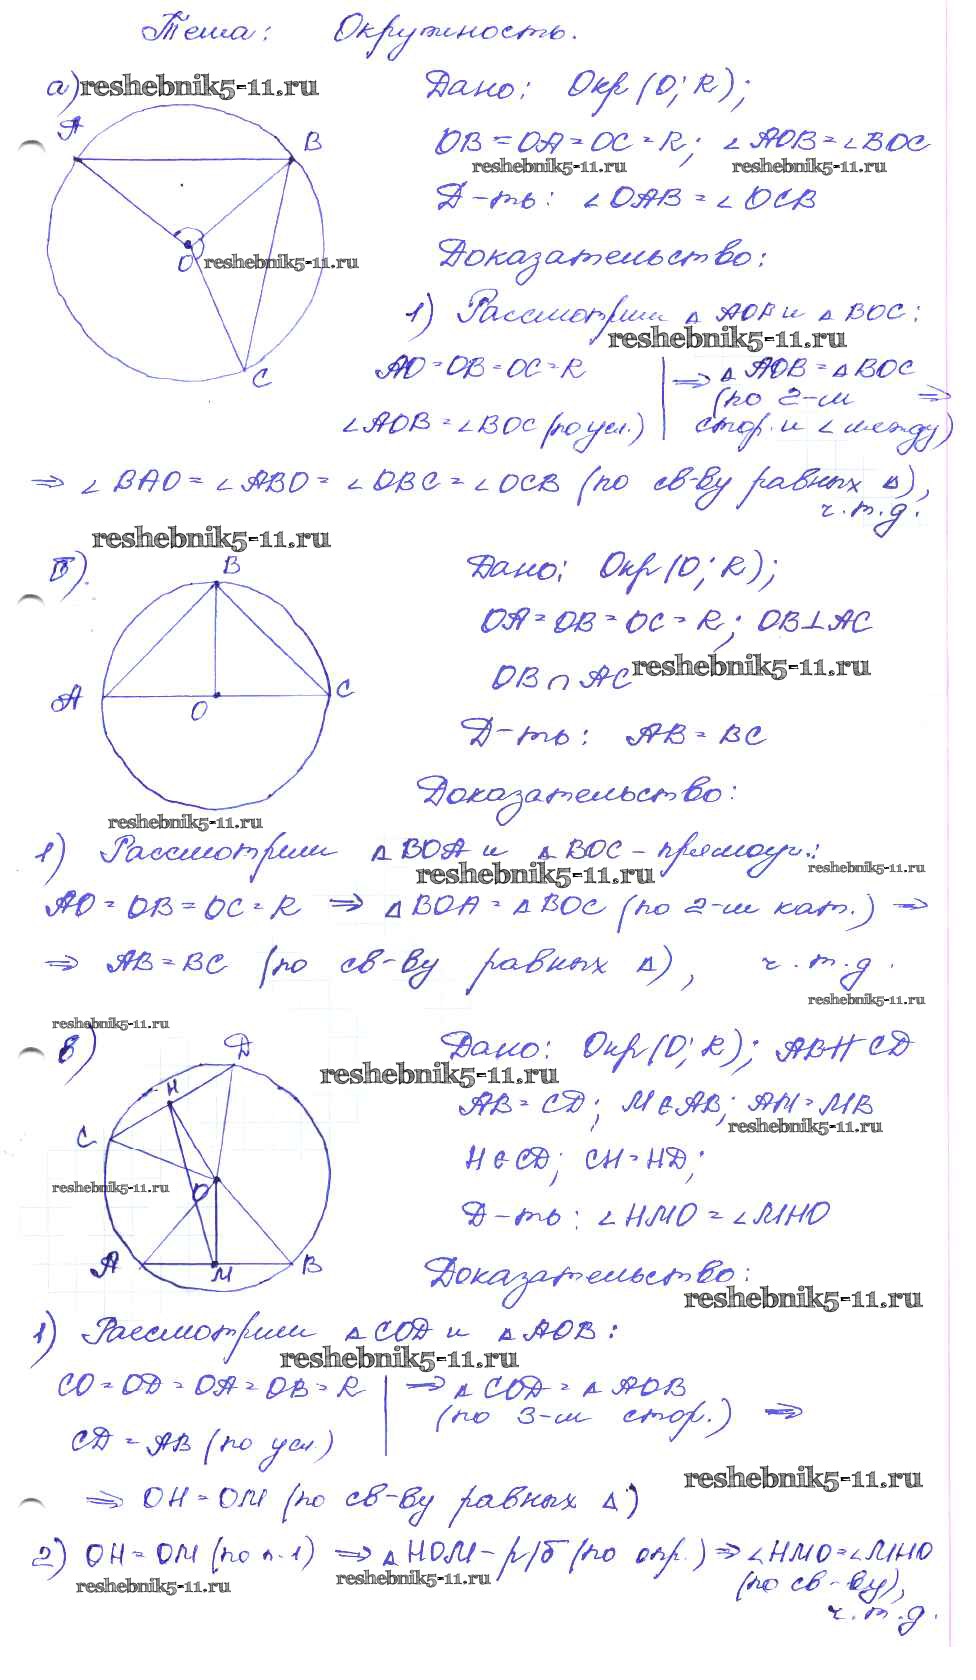 Тема: Окружность.
а) reshebnik5-11.ru
A
B
O
C
reshebnik5-11.ru
Дано: Окр (O; R);
OB = OA = OC = R; ∠AOB = ∠BOC
reshebnik5-11.ru reshebnik5-11.ru
Д-ть: ∠OAB = ∠OCB
Доказательство:
1) Рассмотрим △ AOB и △ BOC:
reshebnik5-11.ru
AO = OB = OC = R | ⇒ △ AOB = △ BOC
(по 2-м ⇒
∠AOB = ∠BOC (по усл.) | стор. и ∠ между)
⇒ ∠BAO = ∠ABO = ∠OBC = ∠OCB (по св-ву равных △),
ч.т.д.
reshebnik5-11.ru
Б)
B
A
O
C
reshebnik5-11.ru
Дано: Окр (O; R);
OA = OB = OC = R; OB ⊥ AC
OB ∩ AC reshebnik5-11.ru
Д-ть: AB = BC
Доказательство:
1) Рассмотрим △ BOA и △ BOC - прямоуг.:
reshebnik5-11.ru reshebnik5-11.ru
AO = OB = OC = R ⇒ △ BOA = △ BOC (по 2-м кат.) ⇒
⇒ AB = BC (по св-ву равных △), ч.т.д.
reshebnik5-11.ru
reshebnik5-11.ru
в)
D
H
C
O
A
M
B
reshebnik5-11.ru
Дано: Окр (O; R); AB ∦ CD
reshebnik5-11.ru
AB = CD; M ∈ AB; AM = MB
reshebnik5-11.ru
H ∈ CD; CH = HD;
Д-ть: ∠HMO = ∠MHO
Доказательство:
reshebnik5-11.ru
1) Рассмотрим △ COD и △ AOB:
reshebnik5-11.ru
CO = OD = OA = OB = R | ⇒ △ COD = △ AOB
(по 3-м стор.) ⇒
CD = AB (по усл.) |
reshebnik5-11.ru
⇒ OH = OM (по св-ву равных △)
2) OH = OM (по п.1) ⇒ △ HOM - р/б (по опр.) ⇒ ∠HMO = ∠MHO
reshebnik5-11.ru reshebnik5-11.ru (по св-ву),
ч.т.д.